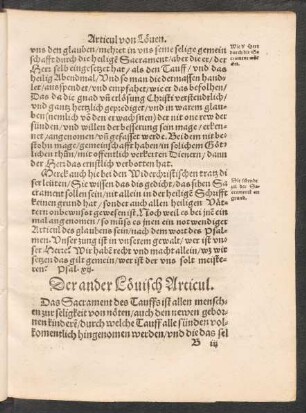 Articul von Löuen.
vns den glauben/mehret in vns seine selige gemein
schafft durch die heilige Sacrament/aber die er/der
Herr selb eingesetzet hat/als den Tauff/vnd das
heilig Abendmal/Vnd so man die dermassen handt
let/ausspendet/vnd empfahet/wie er das befolhen/
Das da die gnad vñ erlösung Christi verstendtlich/
vnd gantz hertzlich geprediget/vnd in warem glau-
ben/nemlich von denen/welche/der ort nit one rew der
sünden/vnd willen der besserung sein mage/erken-
net/angenomen/vñ gefasset werde. Bei dem nit be-
stohn mage/gemeinschafft haben in solichem Gött-
lichen thůn/mit offentlich verkerten Dienern/dann
der Herr das ernstlich verbotten hat.
Merck auch hie bei den Widerchristischen tratz di
ser leuten/Sie wissen das dis gedicht/das siben Sa
crament sollen sein/nit allein in der heilige Schrifft
keinen grund hat/sonder auch allen heiligen Vät-
tern onbewüst gewesen ist. Noch weil es bei jnē ein
mal angenomen/so můss es jnen ein notwendiget
Articul des glaubens sein/nach dem wort des Psal-
men. Vnser zung ist in vnserem gewalt/wer ist vns-
ser Herre? Wir habē recht vnd macht allein/wz wir
setzen das gilt gemein/wer ist der vns solt meiste-
ren? Psal. xij.
Der ander Löuisch Articul.
Das Sacrament des Tauffs ist allen mensch-
en zur seligkeit von nöten/auch den newen gebor-
nen kinderē/durch welche Tauff alle sünden vol-
komentlich hingenomen werden/vnd die das sel
B iij